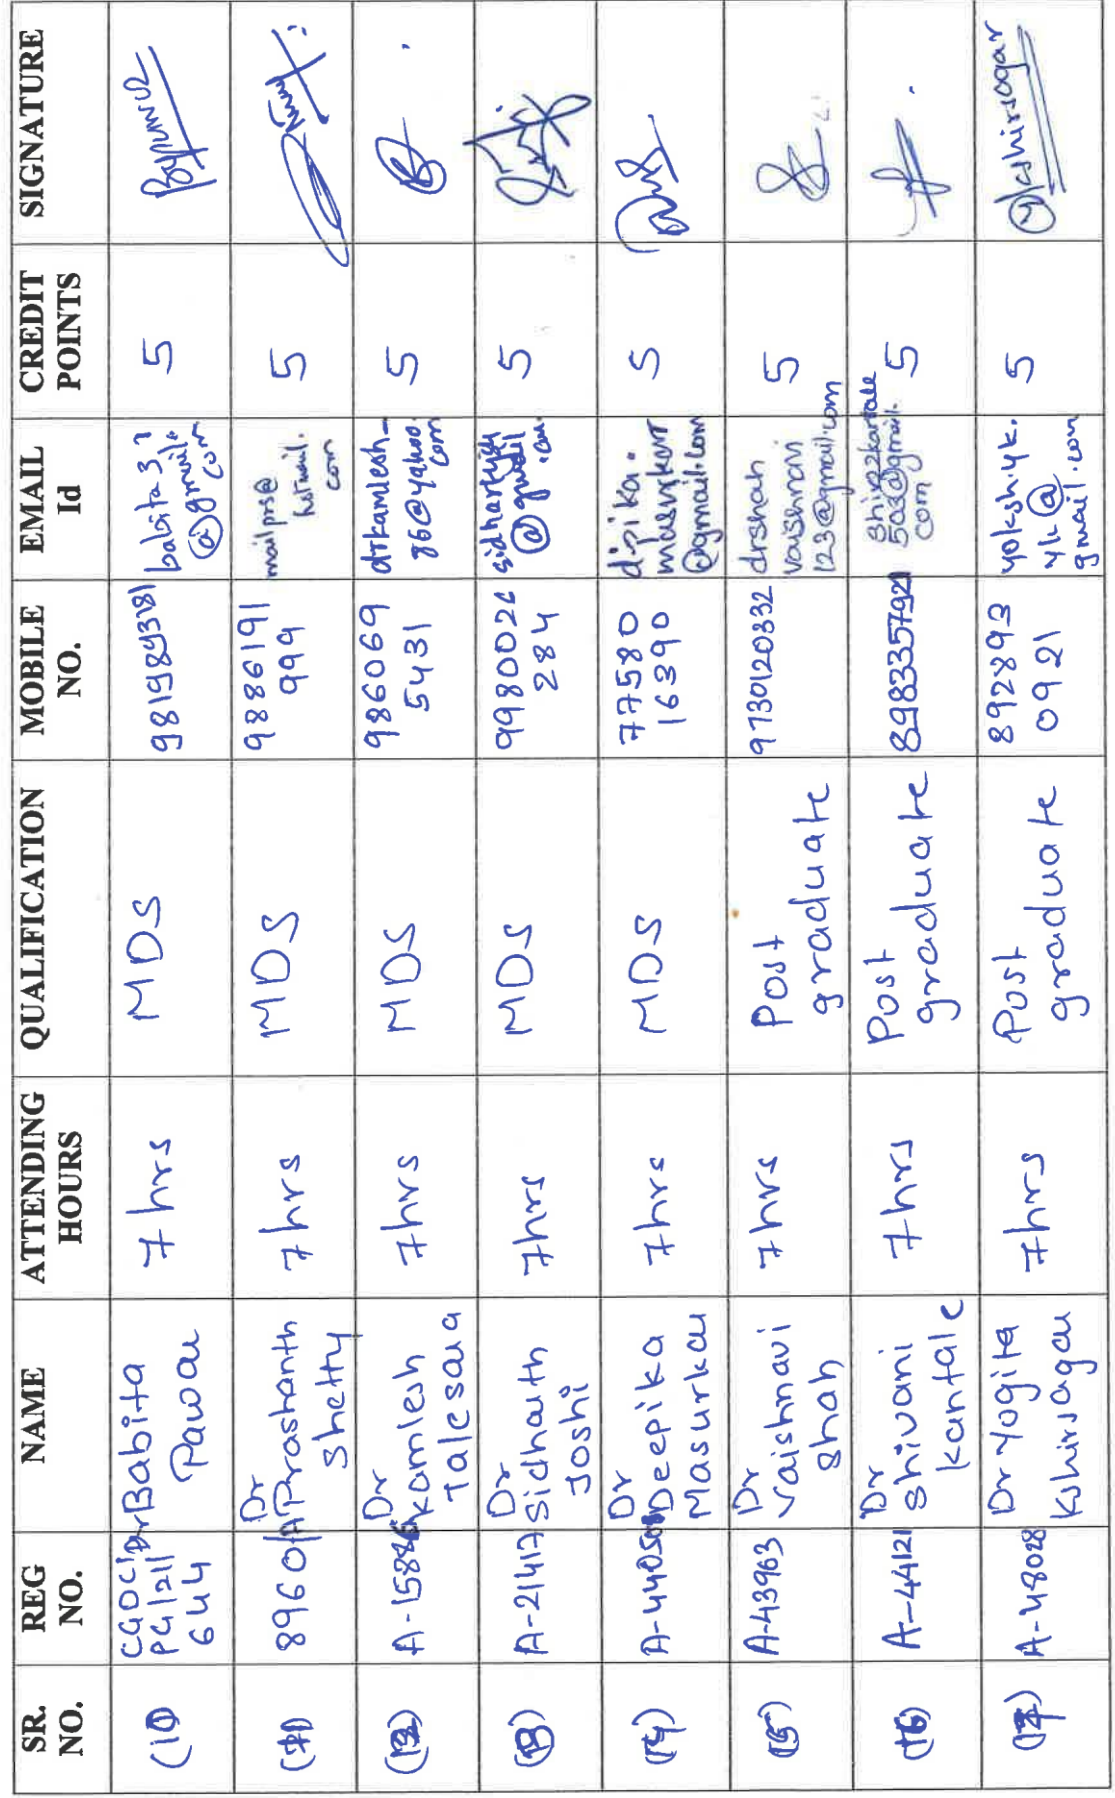 SR. NO. REG NO. NAME ATTENDING HOURS QUALIFICATION MOBILE NO. EMAIL Id CREDIT POINTS SIGNATURE
(10) Dr Babita Pawar 7 hrs MDS 9819893181 @gmail. com 5
8960/A Dr Prashanth Shetty 7hrs MDS 9886191 999 mailprs@ hotmail. com 5
Dr Kamlesh Talesara 7hrs MDS 986069 5431 drkamlesh_ 86@yahoo. com 5
(13) A-21417 Dr Sidharth Joshi 7hrs MDS 284 @gmail 5
(14) Dr Deepika Masurkar 7hrs MDS 77580 16390 @gmail.com 5
(15) A-43963 Dr Vaishnavi Shah 7hrs Post graduate 9730120332 drshah vaishnavi 123@gmail.com 5
(16) A-44121 Dr Shivani Kantale 7hrs Post graduate 8983357921 503@gmail. com 5
(17) A-48028 Dr Yogita Kshirsagar 7hrs Post graduate 892893 0921 yokshi.yk. yk@ gmail.com 5 ykshirsagar